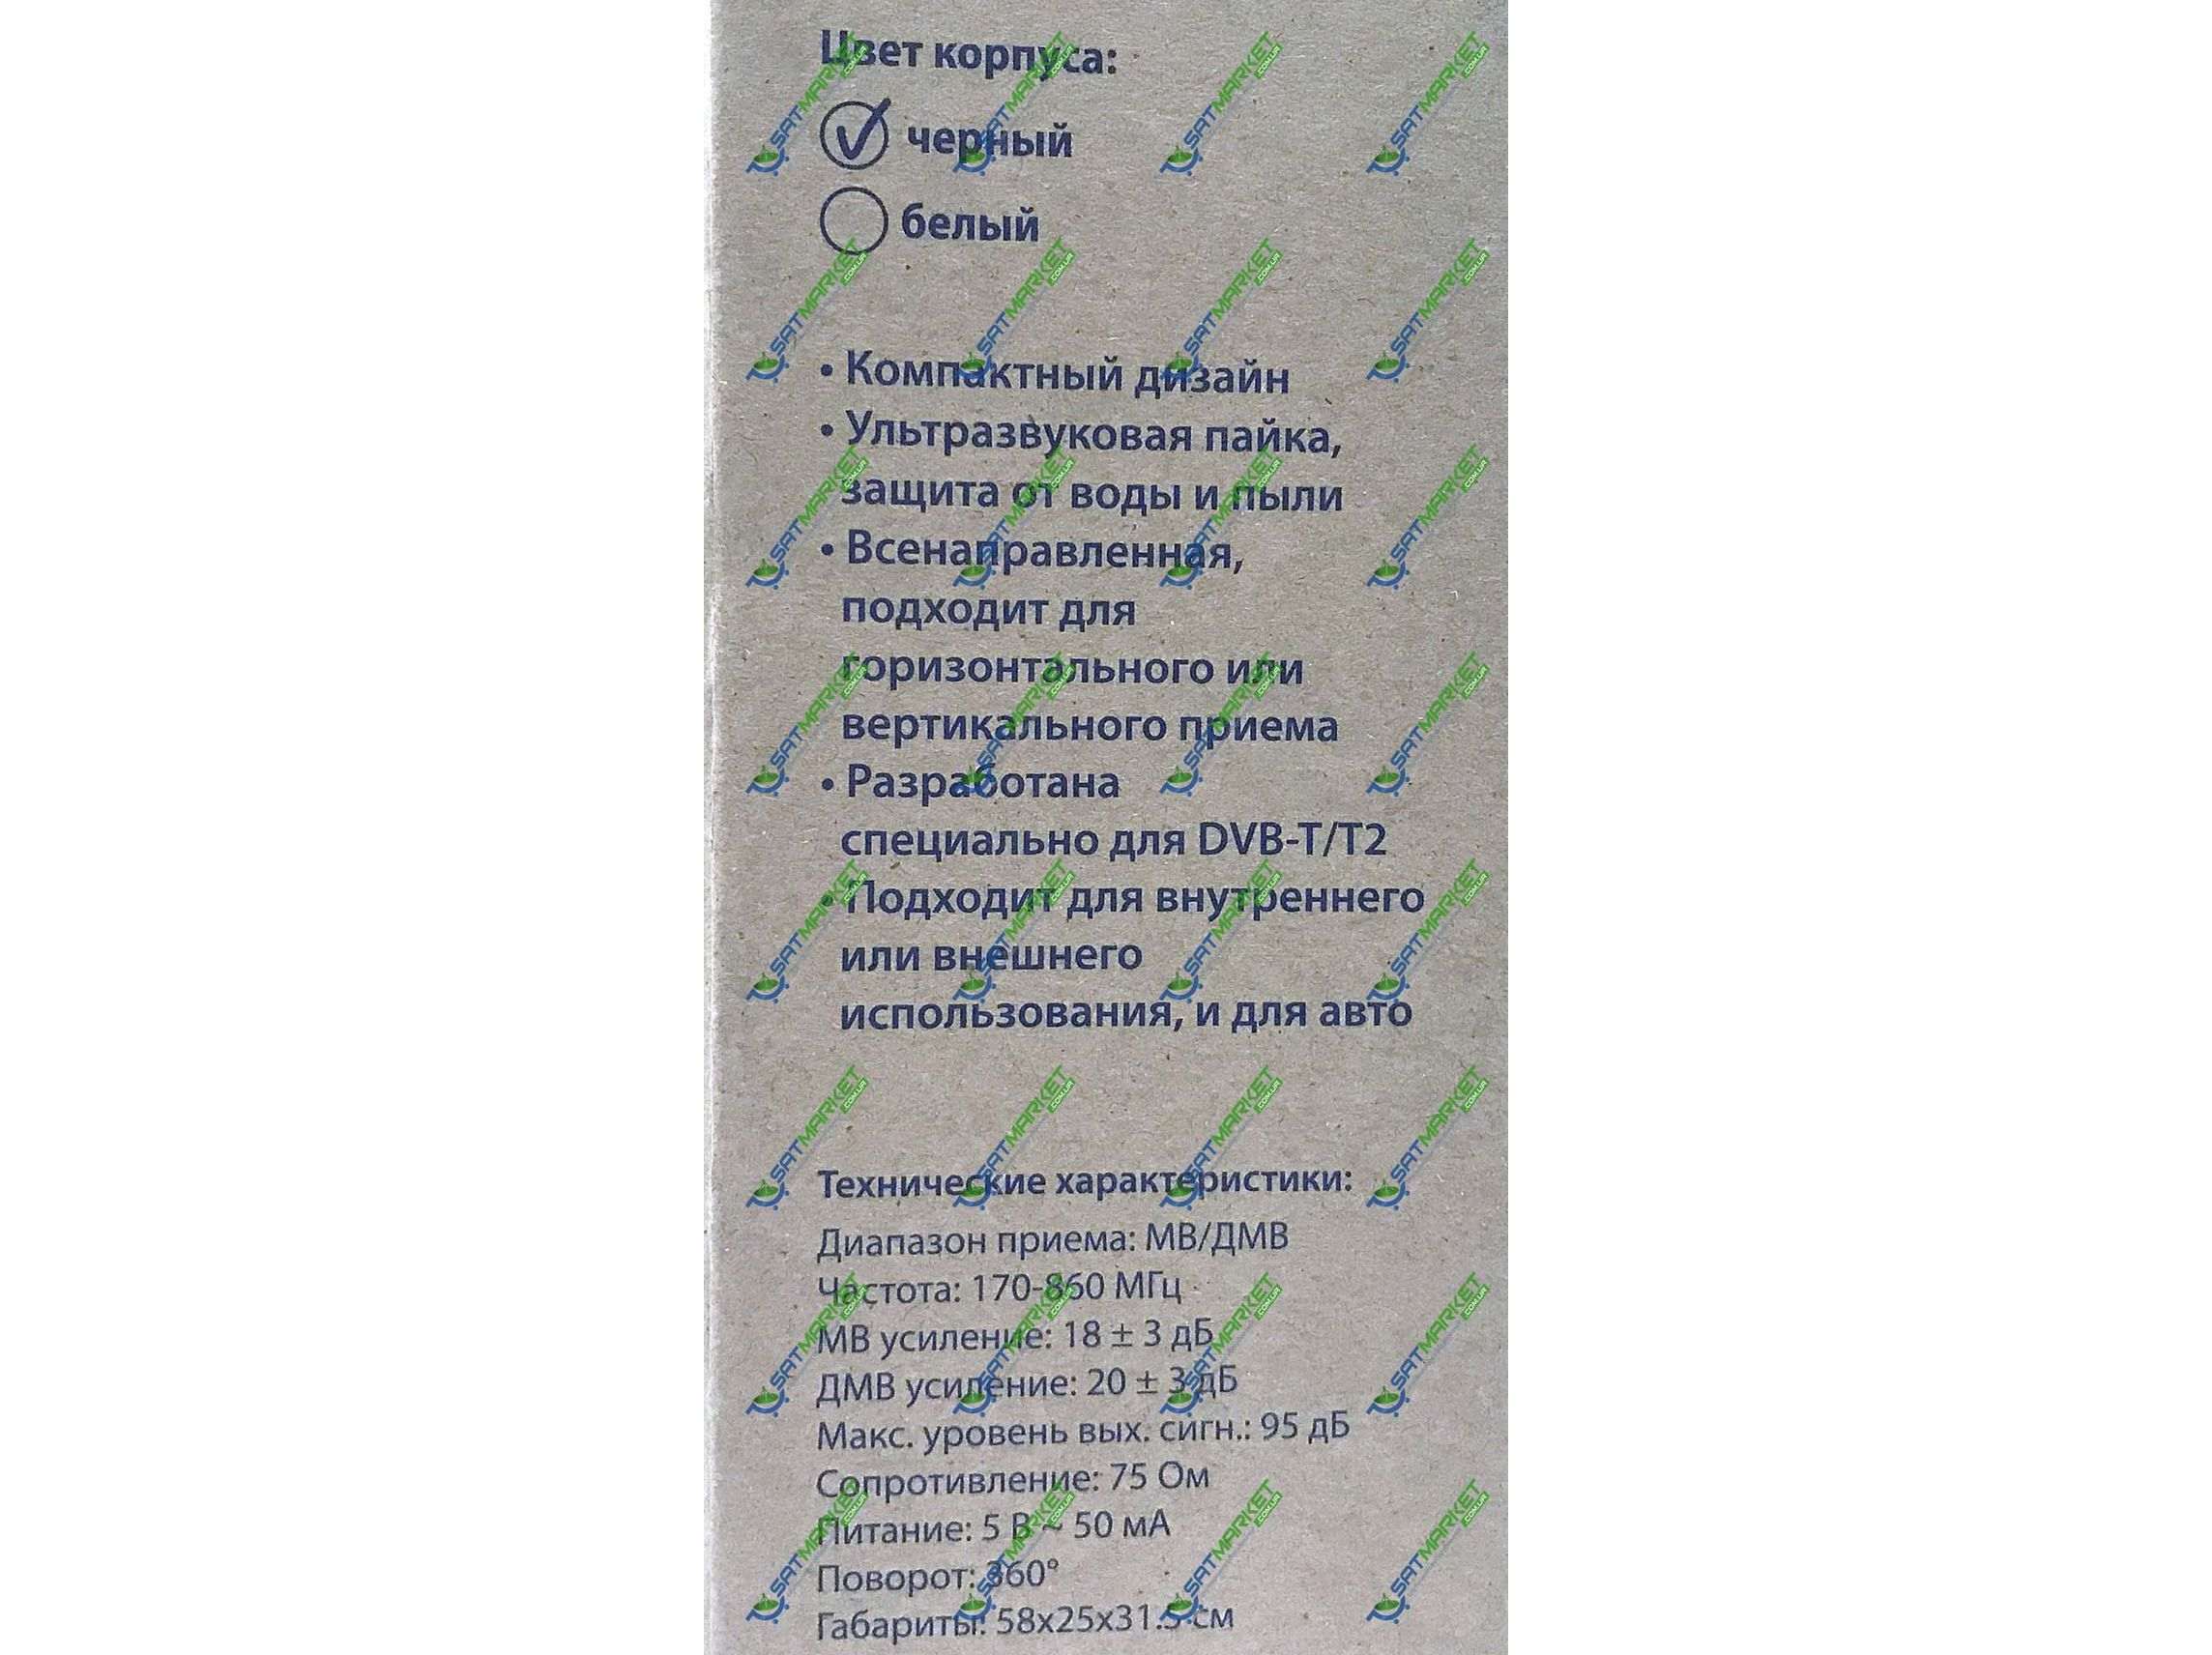 Цвет корпуса:
черный
белый
• Компактный дизайн
• Ультразвуковая пайка,
защита от воды и пыли
• Всенаправленная,
подходит для
горизонтального или
вертикального приема
• Разработана
специально для DVB-T/T2
• Подходит для внутреннего
или внешнего
использования, и для авто
Технические характеристики:
Диапазон приема: МВ/ДМВ
Частота: 170-860 МГц
МВ усиление: 18 ± 3 дБ
ДМВ усиление: 20 ± 3 дБ
Макс. уровень вых. сигн.: 95 дБ
Сопротивление: 75 Ом
Питание: 5 В ~ 50 мА
Поворот: 360°
Габариты: 58x25x31.5 см
SATMARKET
.COM.UA